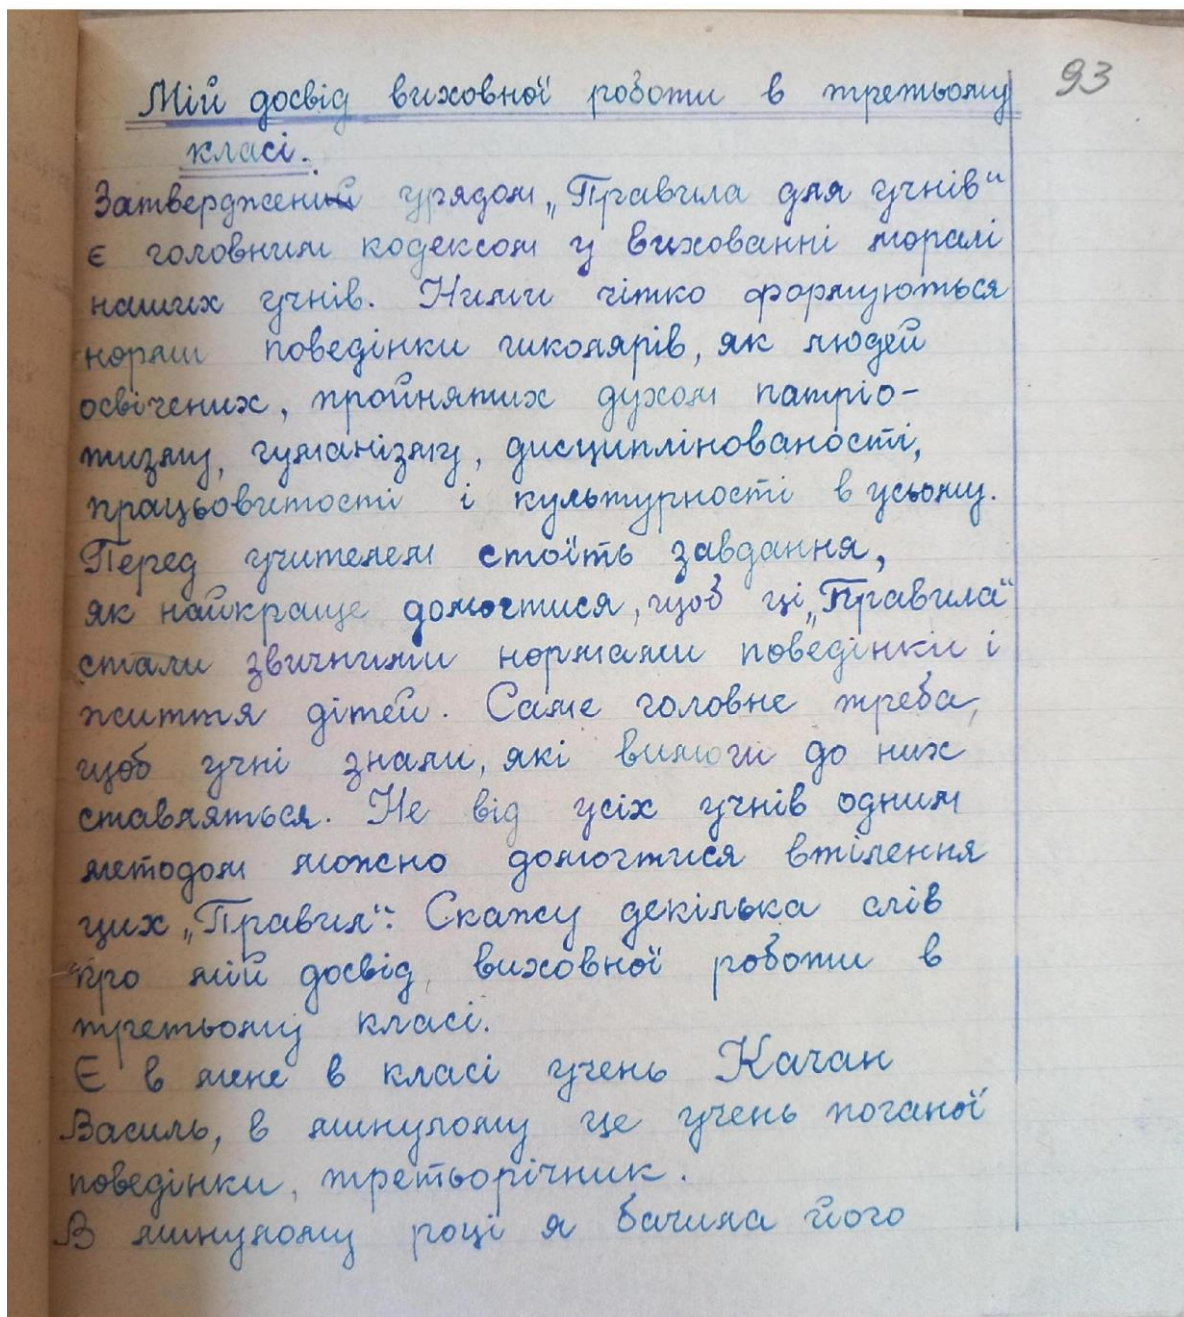 93
Мій досвід виховної роботи в третьому
класі.
Затверджений урядом „Правила для учнів"
є головним кодексом у вихованні моралі
наших учнів. Ними чітко формуються
норми поведінки школярів, як людей
освічених, пройнятих духом патріо-
тизму, гуманізму, дисциплінованості,
працьовитості і культурності в усьому.
Перед учителем стоїть завдання,
як найкраще домогтися, щоб ці „Правила"
стали звичними нормами поведінки і
життя дітей. Саме головне треба,
щоб учні знали, які вимоги до них
ставляться. Не від усіх учнів одним
методом можно домогтися втілення
цих „Правил". Скажу декілька слів
про мій досвід, виховної роботи в
третьому класі.
Є в мене в класі учень Качан
Василь, в минулому це учень поганої
поведінки, третьорічник.
В минулому році я бачила його